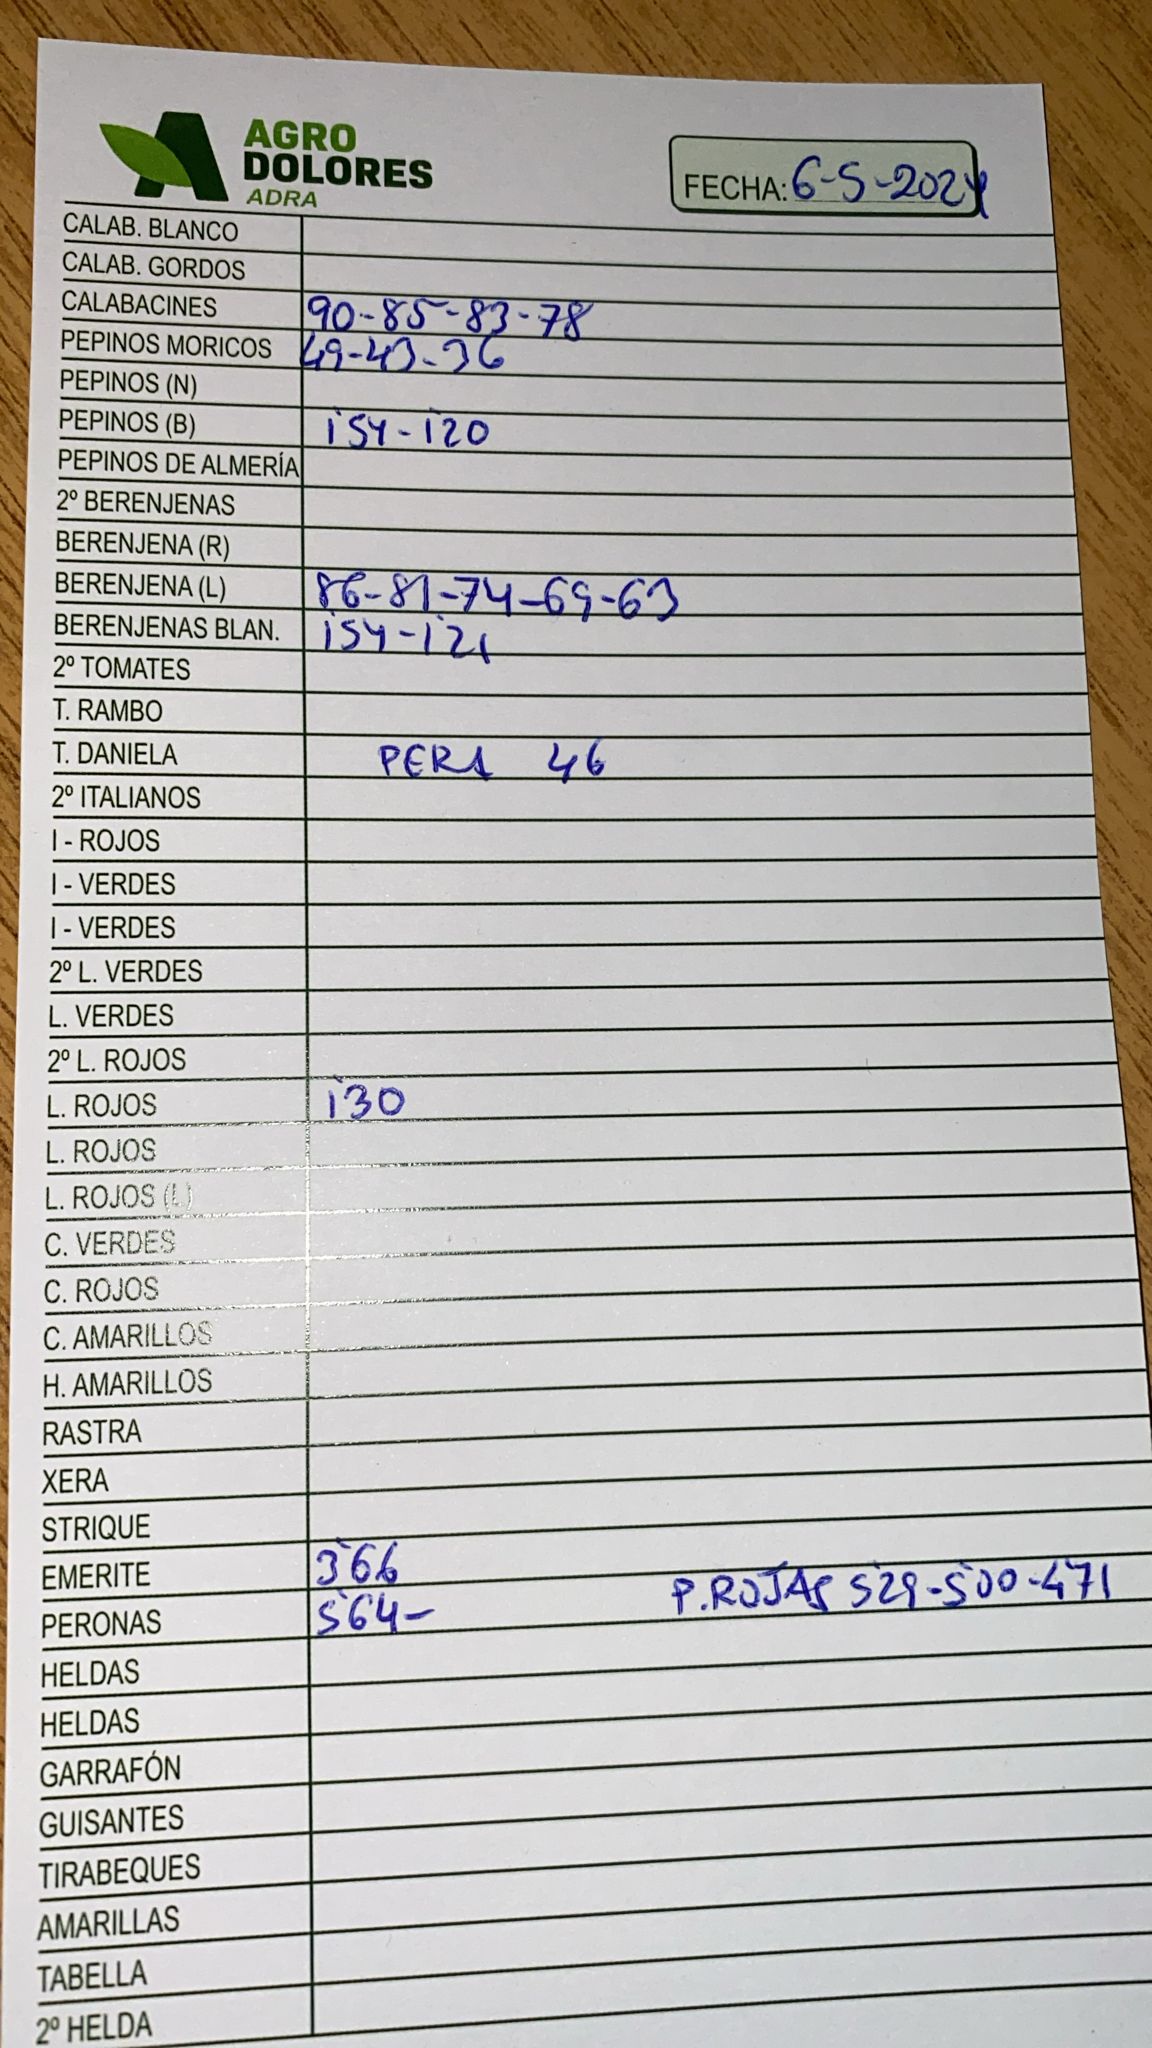 AGRO
DOLORES
ADRA
FECHA: 6-5-2024
CALAB. BLANCO
CALAB. GORDOS
CALABACINES 90-85-83-78
PEPINOS MORICOS 49-43-36
PEPINOS (N)
PEPINOS (B) 154-120
PEPINOS DE ALMERÍA
2º BERENJENAS
BERENJENA (R)
BERENJENA (L) 86-81-74-69-63
BERENJENAS BLAN. 154-121
2º TOMATES
T. RAMBO
T. DANIELA PERA 46
2º ITALIANOS
I - ROJOS
I - VERDES
I - VERDES
2º L. VERDES
L. VERDES
2º L. ROJOS
L. ROJOS 130
L. ROJOS
L. ROJOS (L)
C. VERDES
C. ROJOS
C. AMARILLOS
H. AMARILLOS
RASTRA
XERA
STRIQUE
EMERITE 366
PERONAS 564- P.ROJAS 529-500-471
HELDAS
HELDAS
GARRAFÓN
GUISANTES
TIRABEQUES
AMARILLAS
TABELLA
2º HELDA